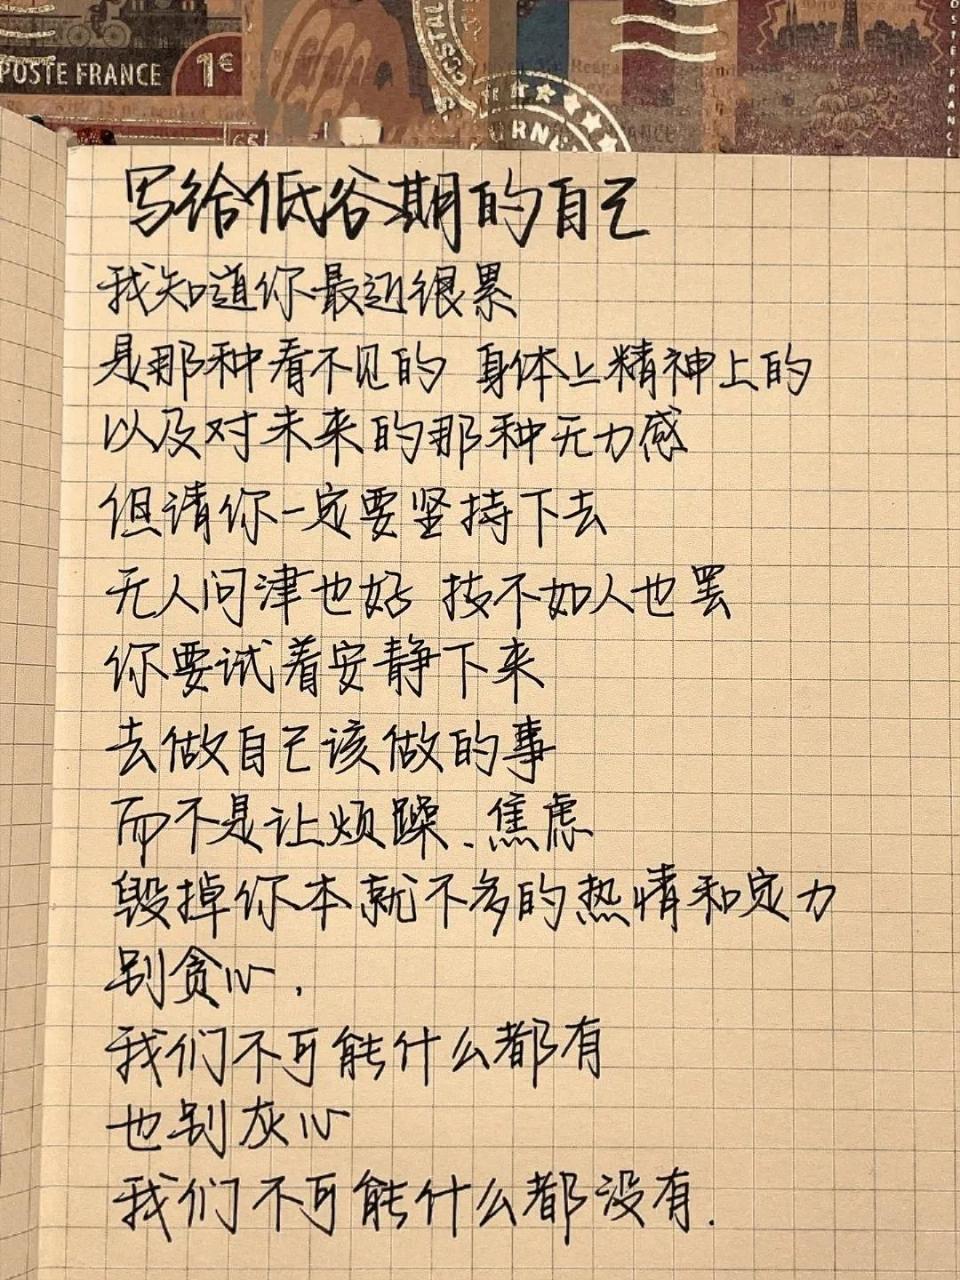 POSTE FRANCE 1€
写给低谷期的自己
我知道你最近很累
是那种看不见的 身体上精神上的
以及对未来的那种无力感
但请你一定要坚持下去
无人问津也好 技不如人也罢
你要试着安静下来
去做自己该做的事
而不是让烦躁、焦虑
毁掉你本就不多的热情和定力
别贪心,
我们不可能什么都有
也别灰心
我们不可能什么都没有.